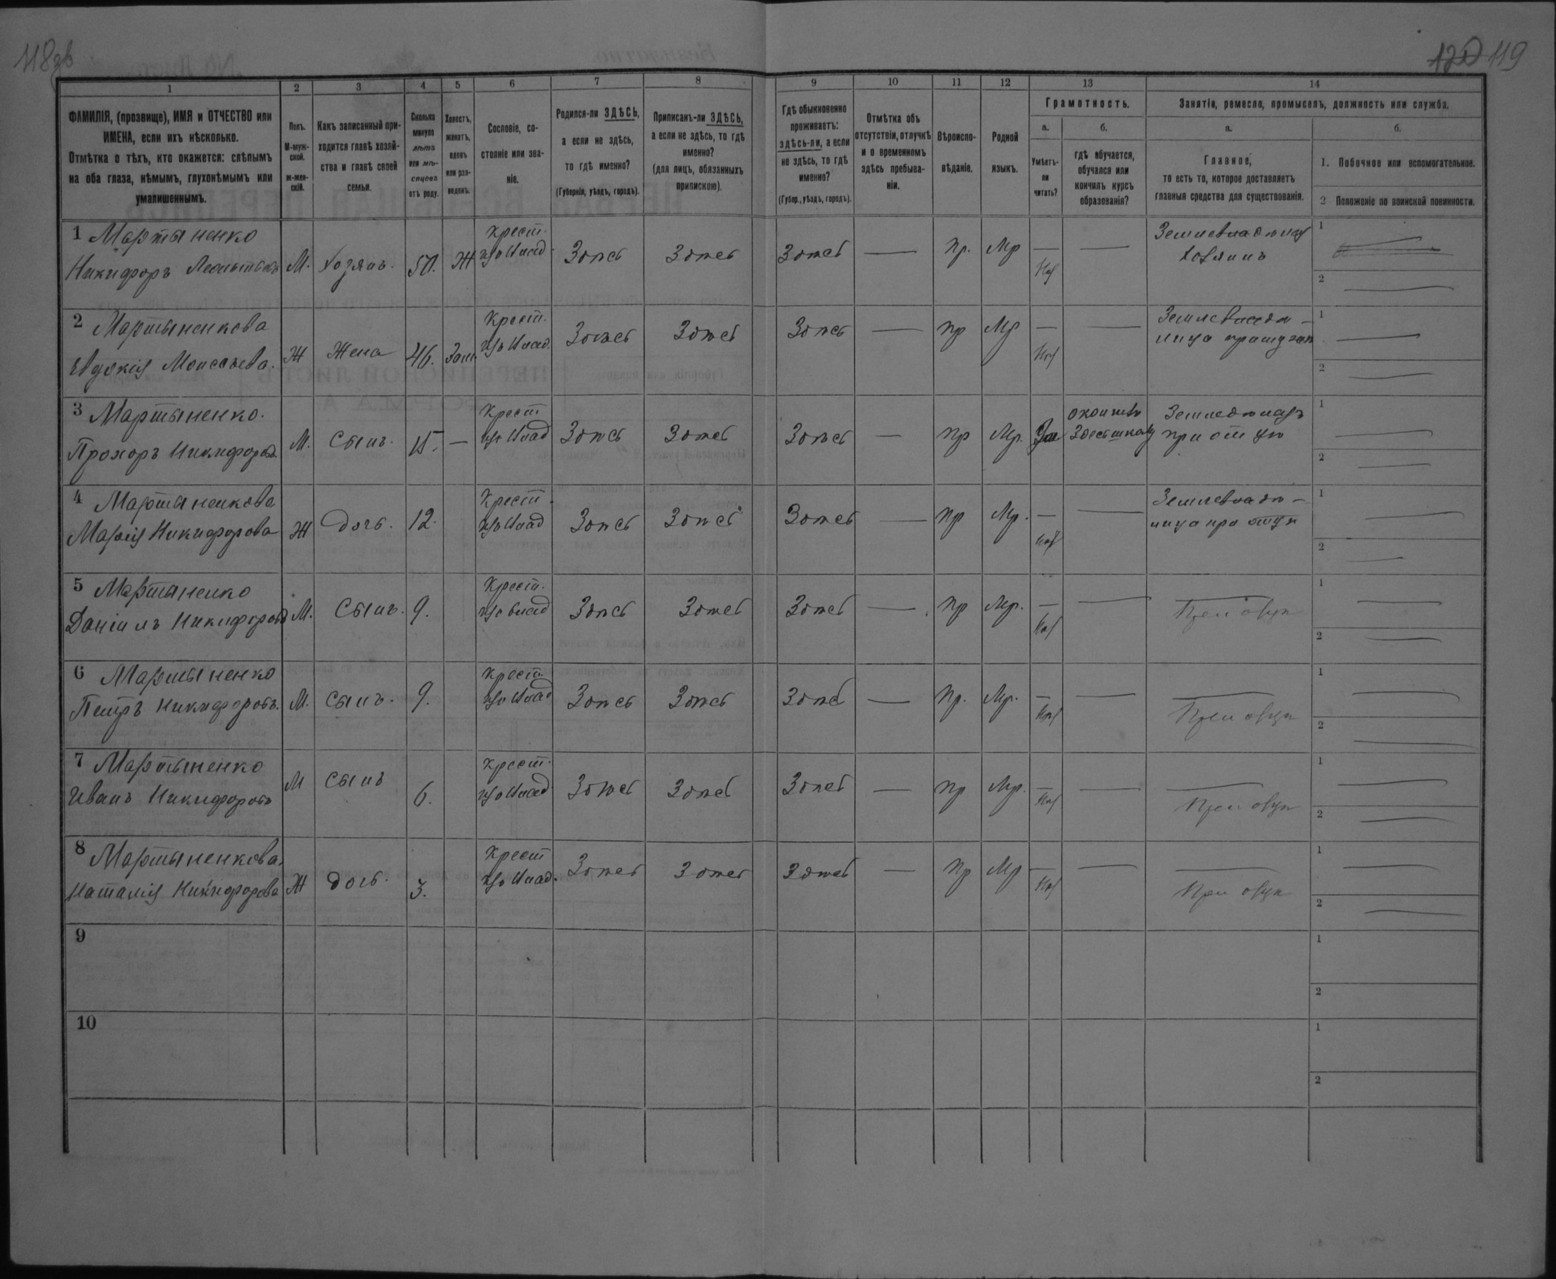 118об
120 119
1
2
3
4
5
6
7
8
9
10
11
12
13
14
ФАМИЛІЯ, (прозвище), ИМЯ и ОТЧЕСТВО или
ИМЕНА, если ихъ нѣсколько.
Отмѣтка о тѣхъ, кто окажется: слѣпымъ
на оба глаза, нѣмымъ, глухонѣмымъ или
умалишеннымъ.
Полъ.
М-муж-
ской.
Ж-жен-
скій.
Какъ записанный при-
ходится главѣ хозяй-
ства и главѣ своей
семьи.
Сколько
минуло
лѣтъ
или мѣ-
сяцевъ
отъ роду.
Холостъ,
женатъ,
вдовъ
или раз-
веденъ.
Сословіе, со-
стояніе или зва-
ніе.
Родился-ли ЗДѢСЬ,
а если не здѣсь,
то гдѣ именно?
(Губернія, уѣздъ, городъ).
Приписанъ-ли ЗДѢСЬ,
а если не здѣсь, то гдѣ
именно?
(для лицъ, обязанныхъ
припискою).
Гдѣ обыкновенно
проживаетъ:
здѣсь-ли, а если
не здѣсь, то гдѣ
именно?
(Губер., уѣздъ, городъ).
Отмѣтка объ
отсутствіи, отлучкѣ
и о временномъ
здѣсь пребыва-
ніи.
Вѣроиспо-
вѣданіе.
Родной
языкъ.
Грамотность.
а.
Умѣетъ-
ли
читать?
б.
гдѣ обучается,
обучался или
кончилъ курсъ
образованія?
Занятіе, ремесло, промыселъ, должность или служба.
а.
Главное,
то есть то, которое доставляетъ
главныя средства для существованія.
б.
1. Побочное или вспомогательное.
2 Положеніе по воинской повинности.
1 Мартыненко
Никифоръ М. Хозяинъ. 50. Ж Крест. Здѣсь Здѣсь Здѣсь — Пр. Мр — Нѣт —
Хозяинъ
1
2
2 Мартыненкова
Евдокія Моисѣева. Ж Жена 46. Зам Крест. Здѣсь Здѣсь Здѣсь — Пр Мр — Нѣт —
1
2
3 Мартыненко.
Прохоръ Никифоровъ М. Сынъ. 15. — Крест Здѣсь Здѣсь Здѣсь — Пр Мр. Да
при отцѣ
1
2
4 Мартыненкова
Марія Никифорова Ж дочь. 12. Крест. Здѣсь Здѣсь Здѣсь — Пр Мр. — Нѣт —
при отцѣ
1
2
5 Мартыненко
Даніилъ Никифоровъ М. Сынъ. 9. Крест. Здѣсь Здѣсь Здѣсь — Пр Мр. — Нѣт —
При отцѣ
1
2
6 Мартыненко
Петръ Никифоровъ. М. Сынъ. 9. Крест. Здѣсь Здѣсь Здѣсь — Пр. Мр. — Нѣт —
При отцѣ
1
2
7 Мартыненко
Иванъ Никифоровъ М Сынъ 6. Крест. Здѣсь Здѣсь Здѣсь — Пр Мр. — Нѣт —
При отцѣ
1
2
8 Мартыненкова
Наталія Никифорова Ж дочь. 3. Крест Здѣсь Здѣсь Здѣсь — Пр Мр — Нѣт —
При отцѣ
1
2
9
1
2
10
1
2